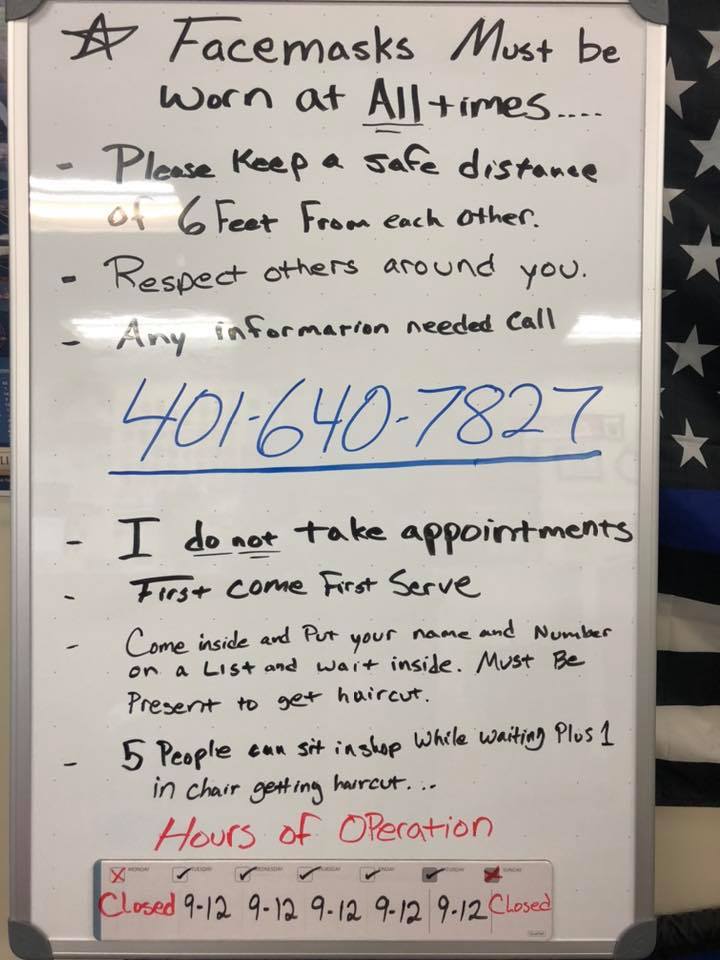 ☆ Facemasks Must be
worn at All times....
- Please Keep a safe distance
of 6 Feet From each other.
- Respect others around you.
- Any information needed Call
401-640-7827
- I do not take appointments
- First come First Serve
- Come inside and Put your name and Number
on a List and wait inside. Must Be
Present to get haircut.
- 5 People can sit in shop While waiting Plus 1
in chair getting haircut...
Hours of Operation
MONDAY TUESDAY WEDNESDAY THURSDAY FRIDAY SATURDAY SUNDAY
Closed 9-12 9-12 9-12 9-12 9-12 Closed